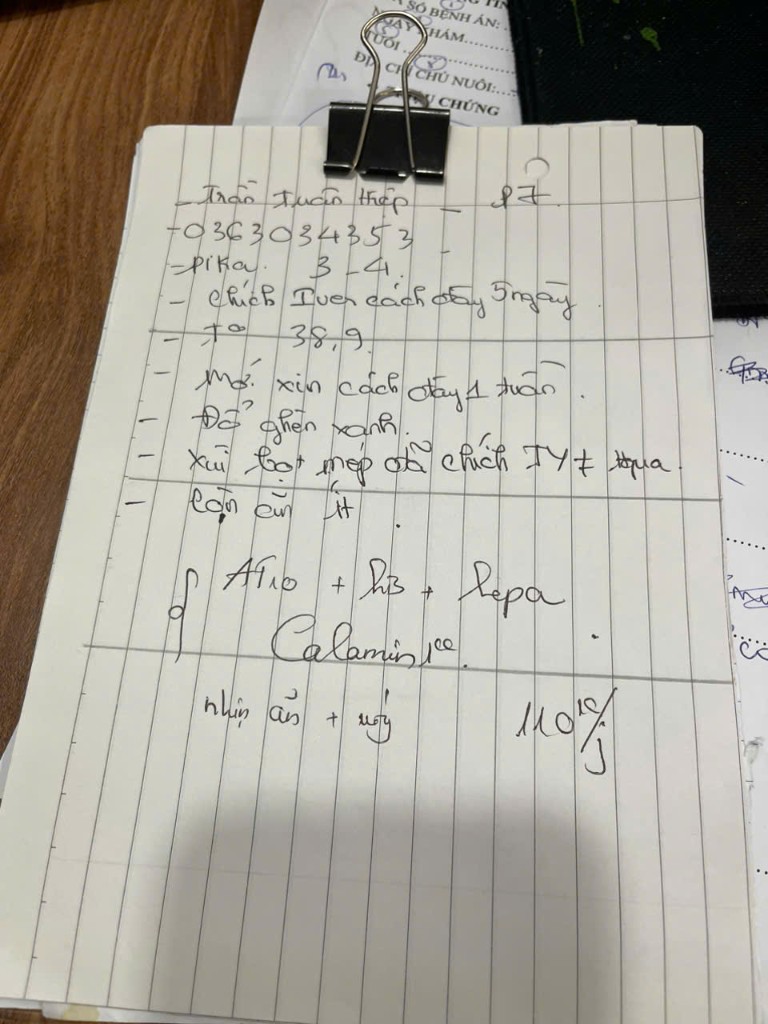 SỐ BỆNH ÁN:
NGÀY KHÁM
TUỔI
ĐỊA CHỈ CHỦ NUÔI:
CHỨNG
- Trần Xuân thép - P7
- 0363034353 -
- pika. 3-4.
- chích Iver cách đây 5 ngày.
- t° 38,9
- Mới xin cách đây 1 tuần.
- Đổ ghèn xanh.
- xùi bọt mép đã chích
- còn ăn ít.
+ +  hepa
Calamin 1cc.
nhịn ăn + uống 110